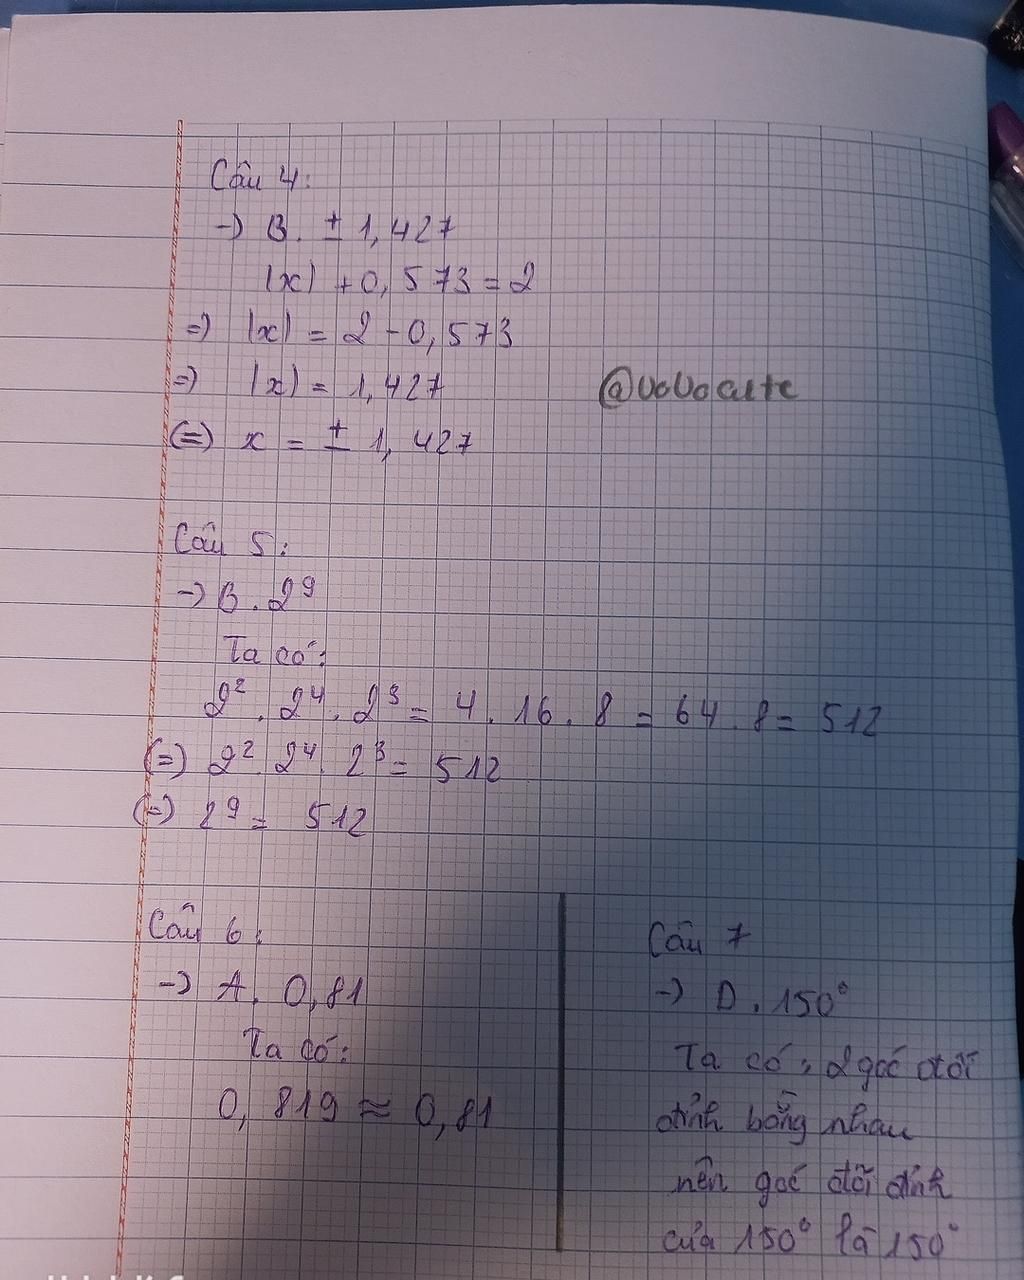 Câu 4:
-) B. ± 1,427
|x| + 0,573 = 2
=) |x| = 2 - 0,573
=) |x| = 1,427
@UcUocute
(=) x = ± 1,427
Câu 5:
-) B. 2⁹
Ta có:
2² . 2⁴ . 2³ = 4 . 16 . 8 = 64 . 8 = 512
(=) 2² . 2⁴ . 2³ = 512
(=) 2⁹ = 512
Câu 6:
-) A. 0,81
Ta có:
0,819 ≈ 0,81
Câu 7
-) D. 150°
Ta có: 2 góc đối
đỉnh bằng nhau
nên góc đối đỉnh
của 150° là 150°